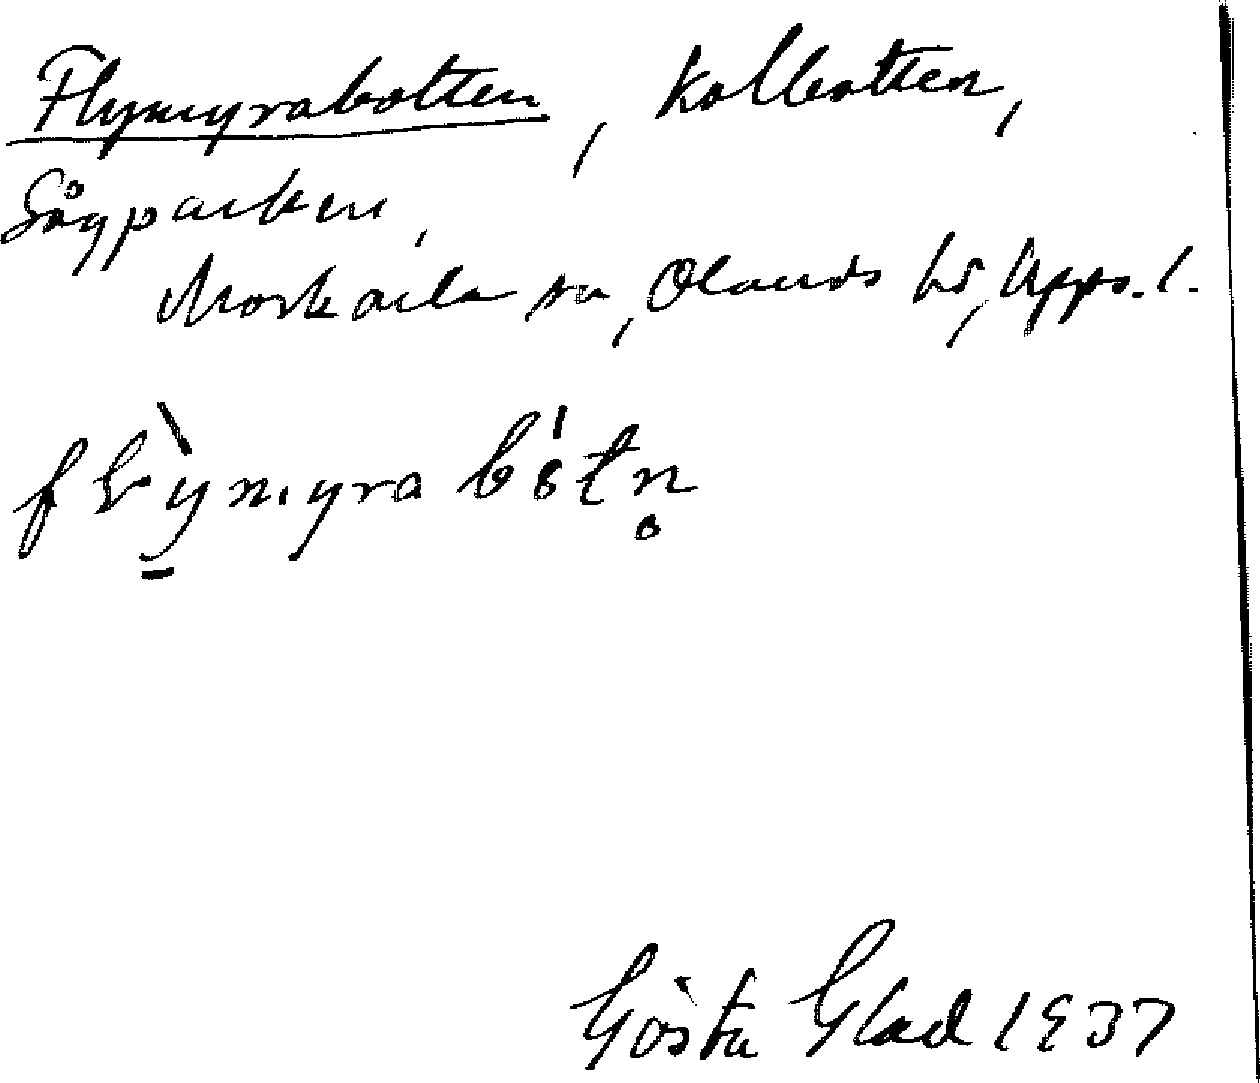 Flymyrabotten, kolbotten,
Sågparken,
Morkarla sn, Olands hd, Upps. l.
flỳmyra bótn̥
Gösta Glad 1937